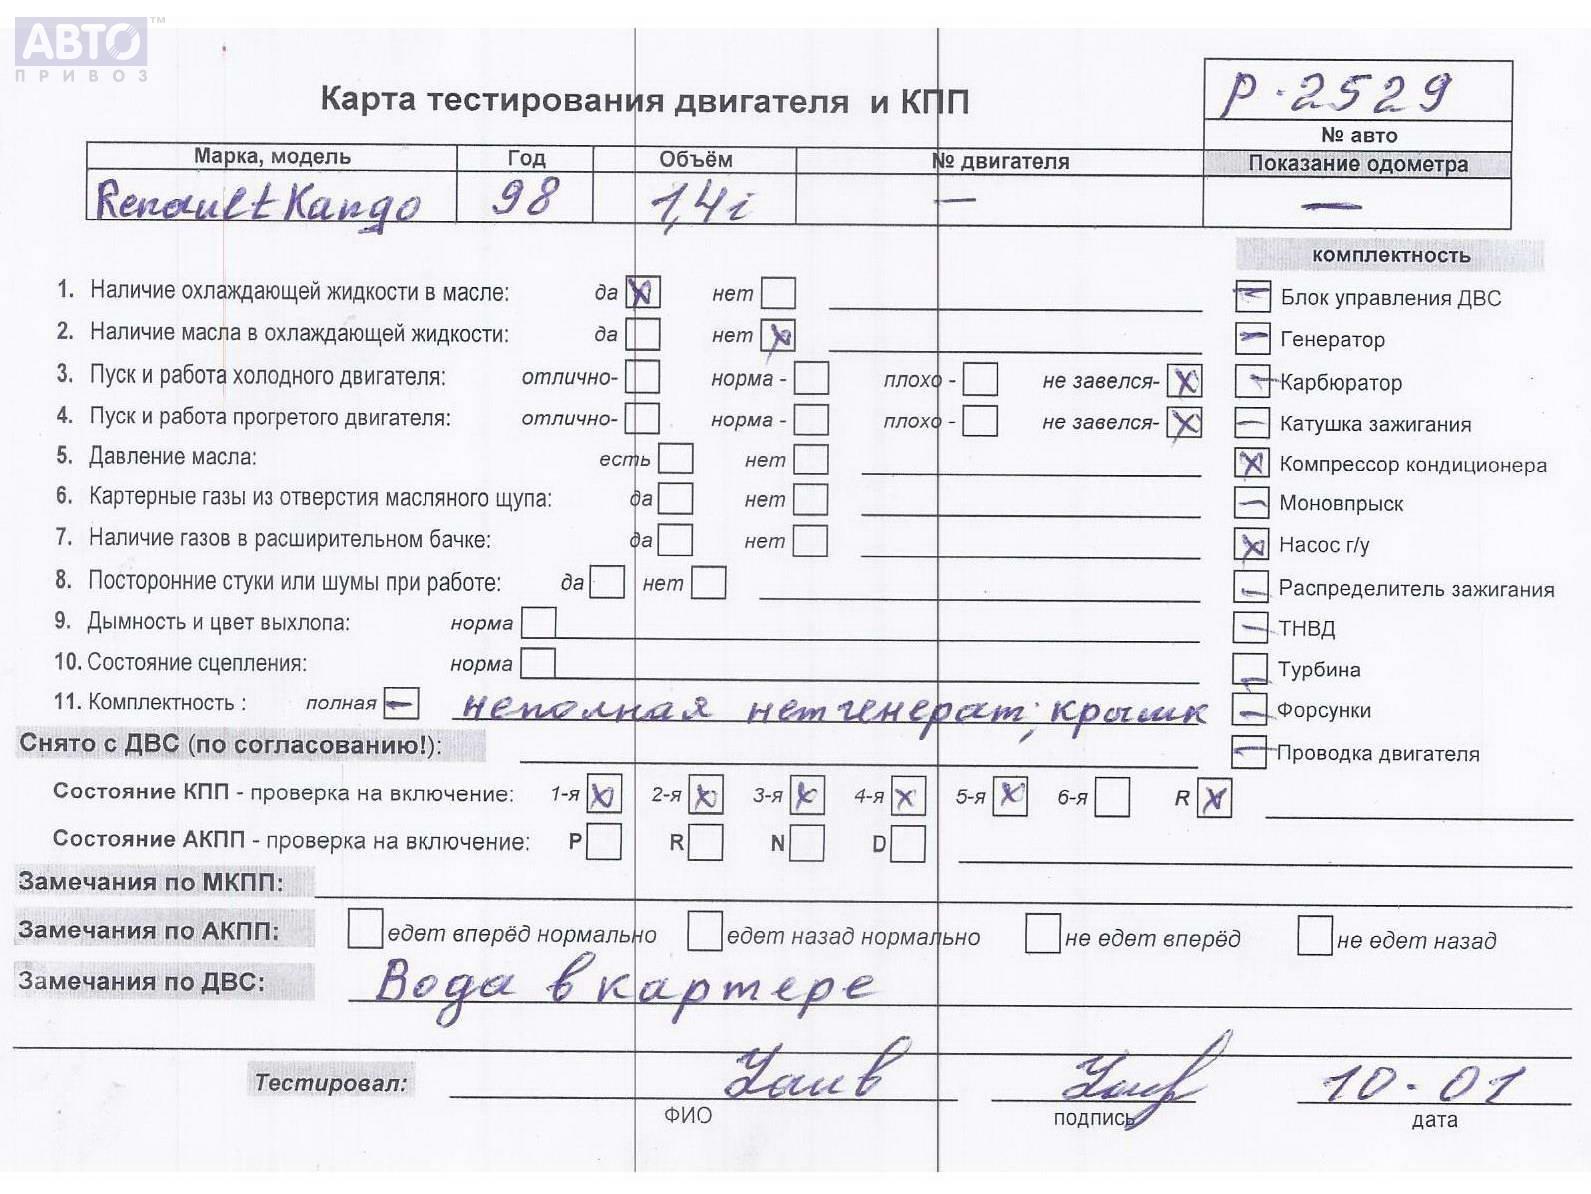 АВТО™
ПРИВОЗ
Карта тестирования двигателя и КПП
Р-2529
№ авто
Марка, модель Год Объём № двигателя Показание одометра
Renault Kango 98 1,4i — —
комплектность
1. Наличие охлаждающей жидкости в масле: да X нет
Блок управления ДВС
2. Наличие масла в охлаждающей жидкости: да нет X
Генератор
3. Пуск и работа холодного двигателя: отлично- норма - плохо - не завелся- X
Карбюратор
4. Пуск и работа прогретого двигателя: отлично- норма - плохо - не завелся- X
Катушка зажигания
5. Давление масла: есть нет
X Компрессор кондиционера
6. Картерные газы из отверстия масляного щупа: да нет
Моновпрыск
7. Наличие газов в расширительном бачке: да нет
X Насос г/у
8. Посторонние стуки или шумы при работе: да нет
Распределитель зажигания
9. Дымность и цвет выхлопа: норма
ТНВД
10. Состояние сцепления: норма
Турбина
11. Комплектность : полная — неполная нет генерат; крышк
Форсунки
Снято с ДВС (по согласованию!):
Проводка двигателя
Состояние КПП - проверка на включение: 1-я X 2-я X 3-я X 4-я X 5-я X 6-я R X
Состояние АКПП - проверка на включение: P R N D
Замечания по МКПП:
Замечания по АКПП: едет вперёд нормально едет назад нормально не едет вперёд не едет назад
Замечания по ДВС: Вода в картере
Тестировал: 10-01
ФИО подпись дата